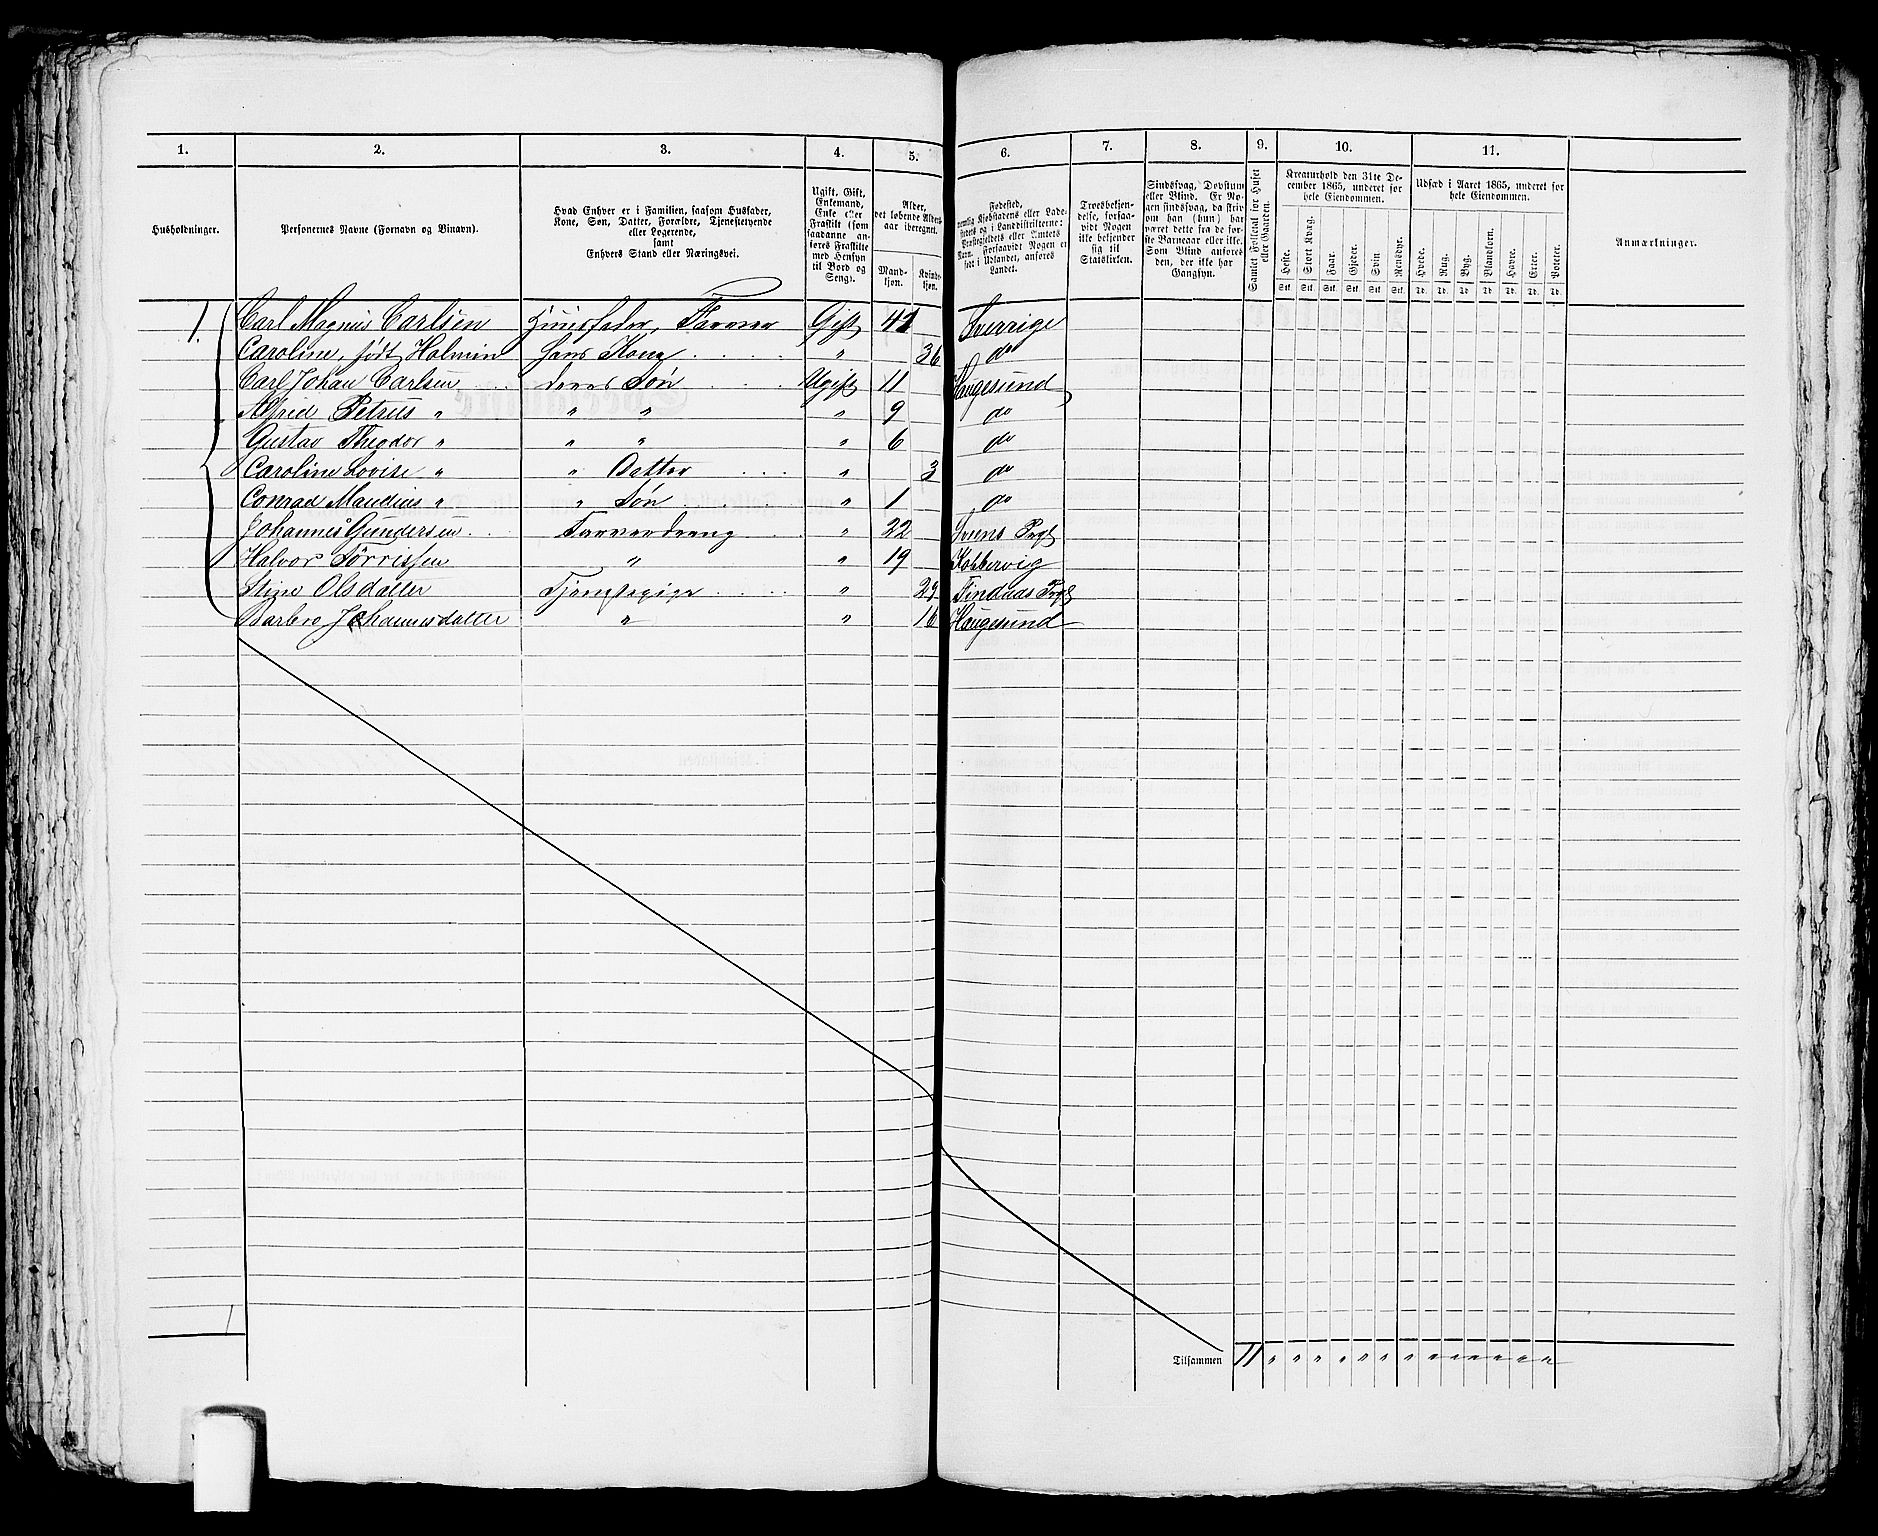 1. 2. 3. 4. 5. 6. 7. 8. 9. 10. 11.
Husholdninger.
Personernes Navne (Fornavn og Tilnavn).
Hvad Enhver er i Familien, saasom Husfader,
Kone, Søn, Datter, Forældre, Tjenestetyende
eller Logerende,
samt
Enhvers Stand eller Næringsvei.
Ugift, Gift,
Enkemand,
Enke eller
Fraskilt (som
saadanne an-
føres Fraskilte
med Hensyn
til Bord og
Seng).
Alder,
det løbende Alders-
aar iberegnet.
Mand-
kjøn.
Kvinde-
kjøn.
Fødested,
nemlig Kjøbstadens eller Lade-
stedets og i Landdistrikterne:
Præstegjeldets eller Amtets
Navn. Forsaavidt Nogen er
født i Udlandet, anføres
Landet.
Troesbekjen-
delse, forsaa-
vidt Nogen
ikke bekjender
sig til
Statskirken.
Sindssvag, Døvstum
eller Blind. Er No-
gen sindssvag, da skriv
om han (hun) har
været dette fra de før-
ste Barneaar eller ikke.
Som Blind anføres
den, der ikke har
Gangsyn.
Samlet Folketal for Huset
eller Gaarden.
Kreaturhold den 31te De-
cember 1865, underet for
hele Eiendommen.
Heste. Stort Kvæg. Faar. Gjeder. Svin Rensdyr.
Stk. Stk. Stk. Stk. Stk. Stk.
Udsæd i Aaret 1865, underet for
hele Eiendommen.
Hvede. Rug. Byg. Blandkorn. Havre. Erter. Poteter.
Td. Td. Td. Td. Td. Td. Td.
Anmærkninger.
1. Carl Magnus Carlsen Huusfader, Farver Gift 41 Sverrige
Caroline, født Holmin hans Kone " 36 do
Carl Johan Carlsen deres Søn Ugift 11 Haugesund
Alfrid Petrus " " " " 9 do
Gustav Theodor " " " " 6 do
Caroline Lovise " " Datter " 3 do
Conrad " " Søn " 1 do
Johannes Gundersen Farverdreng " 22 Sveens Prgl
Halvor Tørrissen " " 19 Kobbervig
Stine Olsdatter Tjenestepige " 29 Findaas Prgl
Barbro Johannesdatter " " 16 Haugesund
1
Tilsammen 11 " " " " " " " " " " " " "